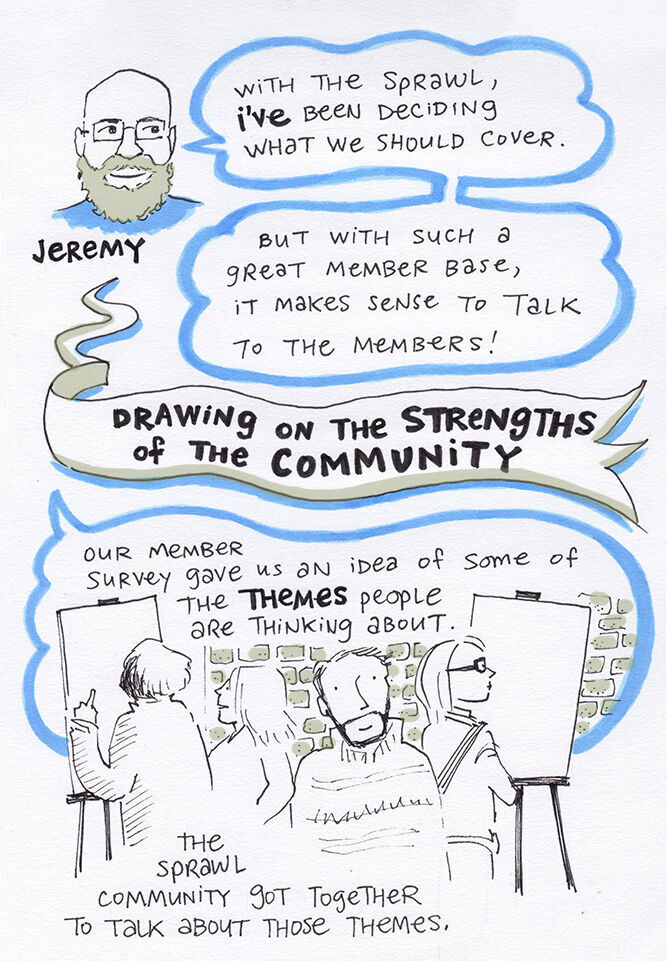 WITH THE SPRAWL,
i've BEEN DECIDING
WHAT WE SHOULD COVER.
JEREMY
BUT WITH SUCH A
GREAT MEMBER BASE,
IT MAKES SENSE TO TALK
TO THE MEMBERS!
DRAWING ON THE STRENGTHS
OF THE COMMUNITY
OUR MEMBER
SURVEY GAVE US AN IDEA OF SOME OF
THE THEMES PEOPLE
ARE THINKING ABOUT.
THE
SPRAWL
COMMUNITY GOT TOGETHER
TO TALK ABOUT THOSE THEMES.